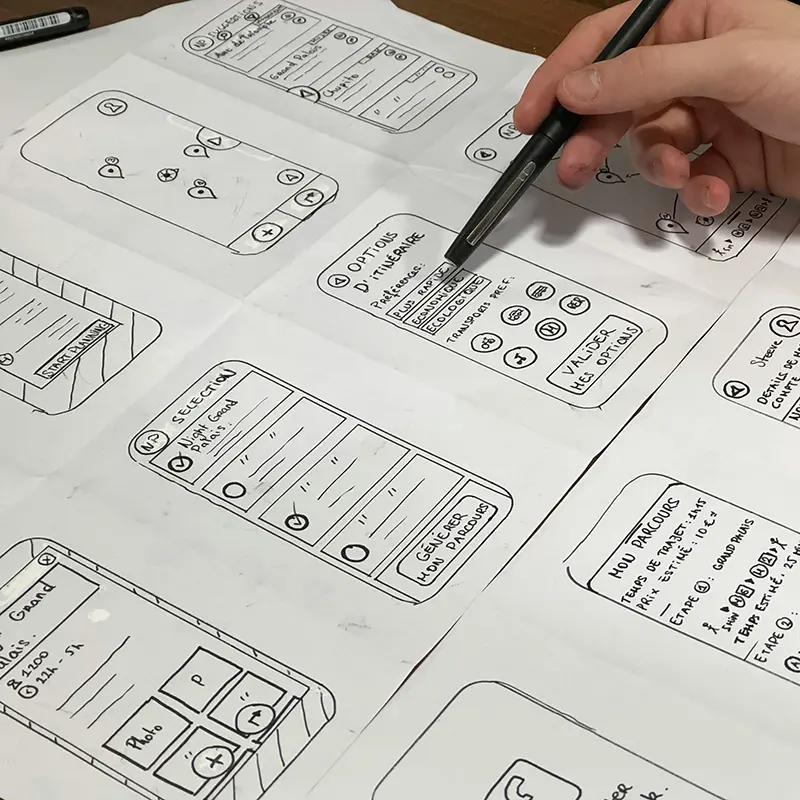 NP SUGGESTIONS
Arc de Triomphe
Grand Palais
Chupito
OPTIONS
D'ITINÉRAIRE
Préférences:
PLUS RAPIDE
ÉCONOMIQUE
ÉCOLOGIQUE
TRANSPORTS PREF:
RER
VALIDER
MES OPTIONS
START PLANNING
NP SELECTION
Night Grand
Palais.
GÉNÉRER
MON PARCOURS
Steeve
DETAILS DE
COMPTE
MON PARCOURS
TEMPS DE TRAJET: 1H15
PRIX ESTIMÉ: 10€
ETAPE 1: GRAND PALAIS
5min
TEMPS ESTIMÉ: 25
ETAPE 2:
Grand
1200
22h - 5h
Photo
P